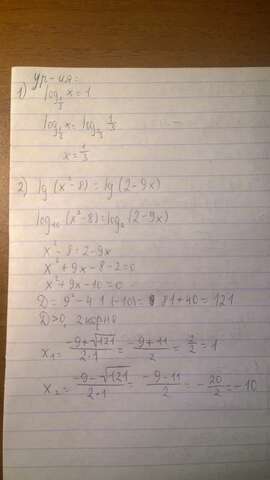 Ур-ия:
1) log_{1/3} x = 1
log_{1/3} x = log_{1/3} 1/3
x = 1/3
2) lg (x² - 8) = lg (2 - 9x)
log₁₀ (x² - 8) = log (2 - 9x)
x² - 8 = 2 - 9x
x² + 9x - 8 - 2 = 0
x² + 9x - 10 = 0
D = 9² - 4·1·(-10) = 81 + 40 = 121
D > 0, 2 корня
x₁ = (-9 + √121)/(2·1) = (-9 + 11)/2 = 2/2 = 1
x₂ = (-9 - √121)/(2·1) = (-9 - 11)/2 = -20/2 = -10